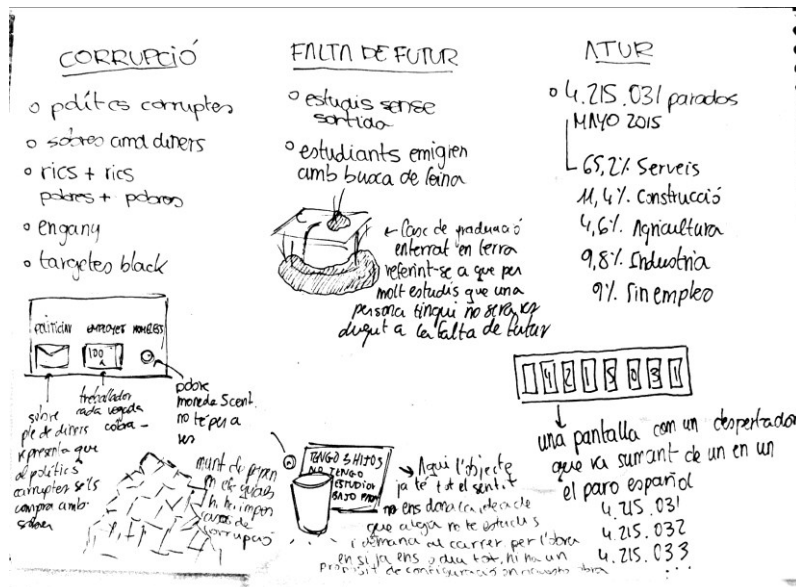 CORRUPCIÓ
o polítics corruptes
o sobres amb diners
o rics + rics
pobres + pobres
o engany
o targetes black
POLITICIAN EMPLOYEE HOMELESS
100
sobre
ple de diners
representa que
al polítics
corruptes se'ls
compra amb
sobres
treballador
cada vegada
cobra -
pobre
moneda 5cent.
no té per a
res
munt de paper
en els quals
hi ha
casos de
corrupció
FALTA DE FUTUR
o estudis sense
sortida
o estudiants emigren
amb busca de feina
← Casc de graduació
enterrat en terra
referint-se a que per
molt estudis que una
persona tingui no serà res
dugut a la falta de futur
TENGO 3 HIJOS
NO TENGO
ESTUDIOS
→ Aqui l'objecte
ja té tot el sentit
no ens dona la idea de
que algú no té estudis
i demana al carrer per l'obra
en si ja ens ho diu tot, hi ha un
propòsit de configuració en aquesta obra
ATUR
o 4.215.031 parados
MAYO 2015
65,2% Serveis
11,4% Construcció
4,6% Agricultura
9,8% Industria
9% Sin empleo
4 2 1 5 0 3 1
una pantalla com un despertador
que va sumant de un en un
el paro español
4.215.031
4.215.032
4.215.033
...